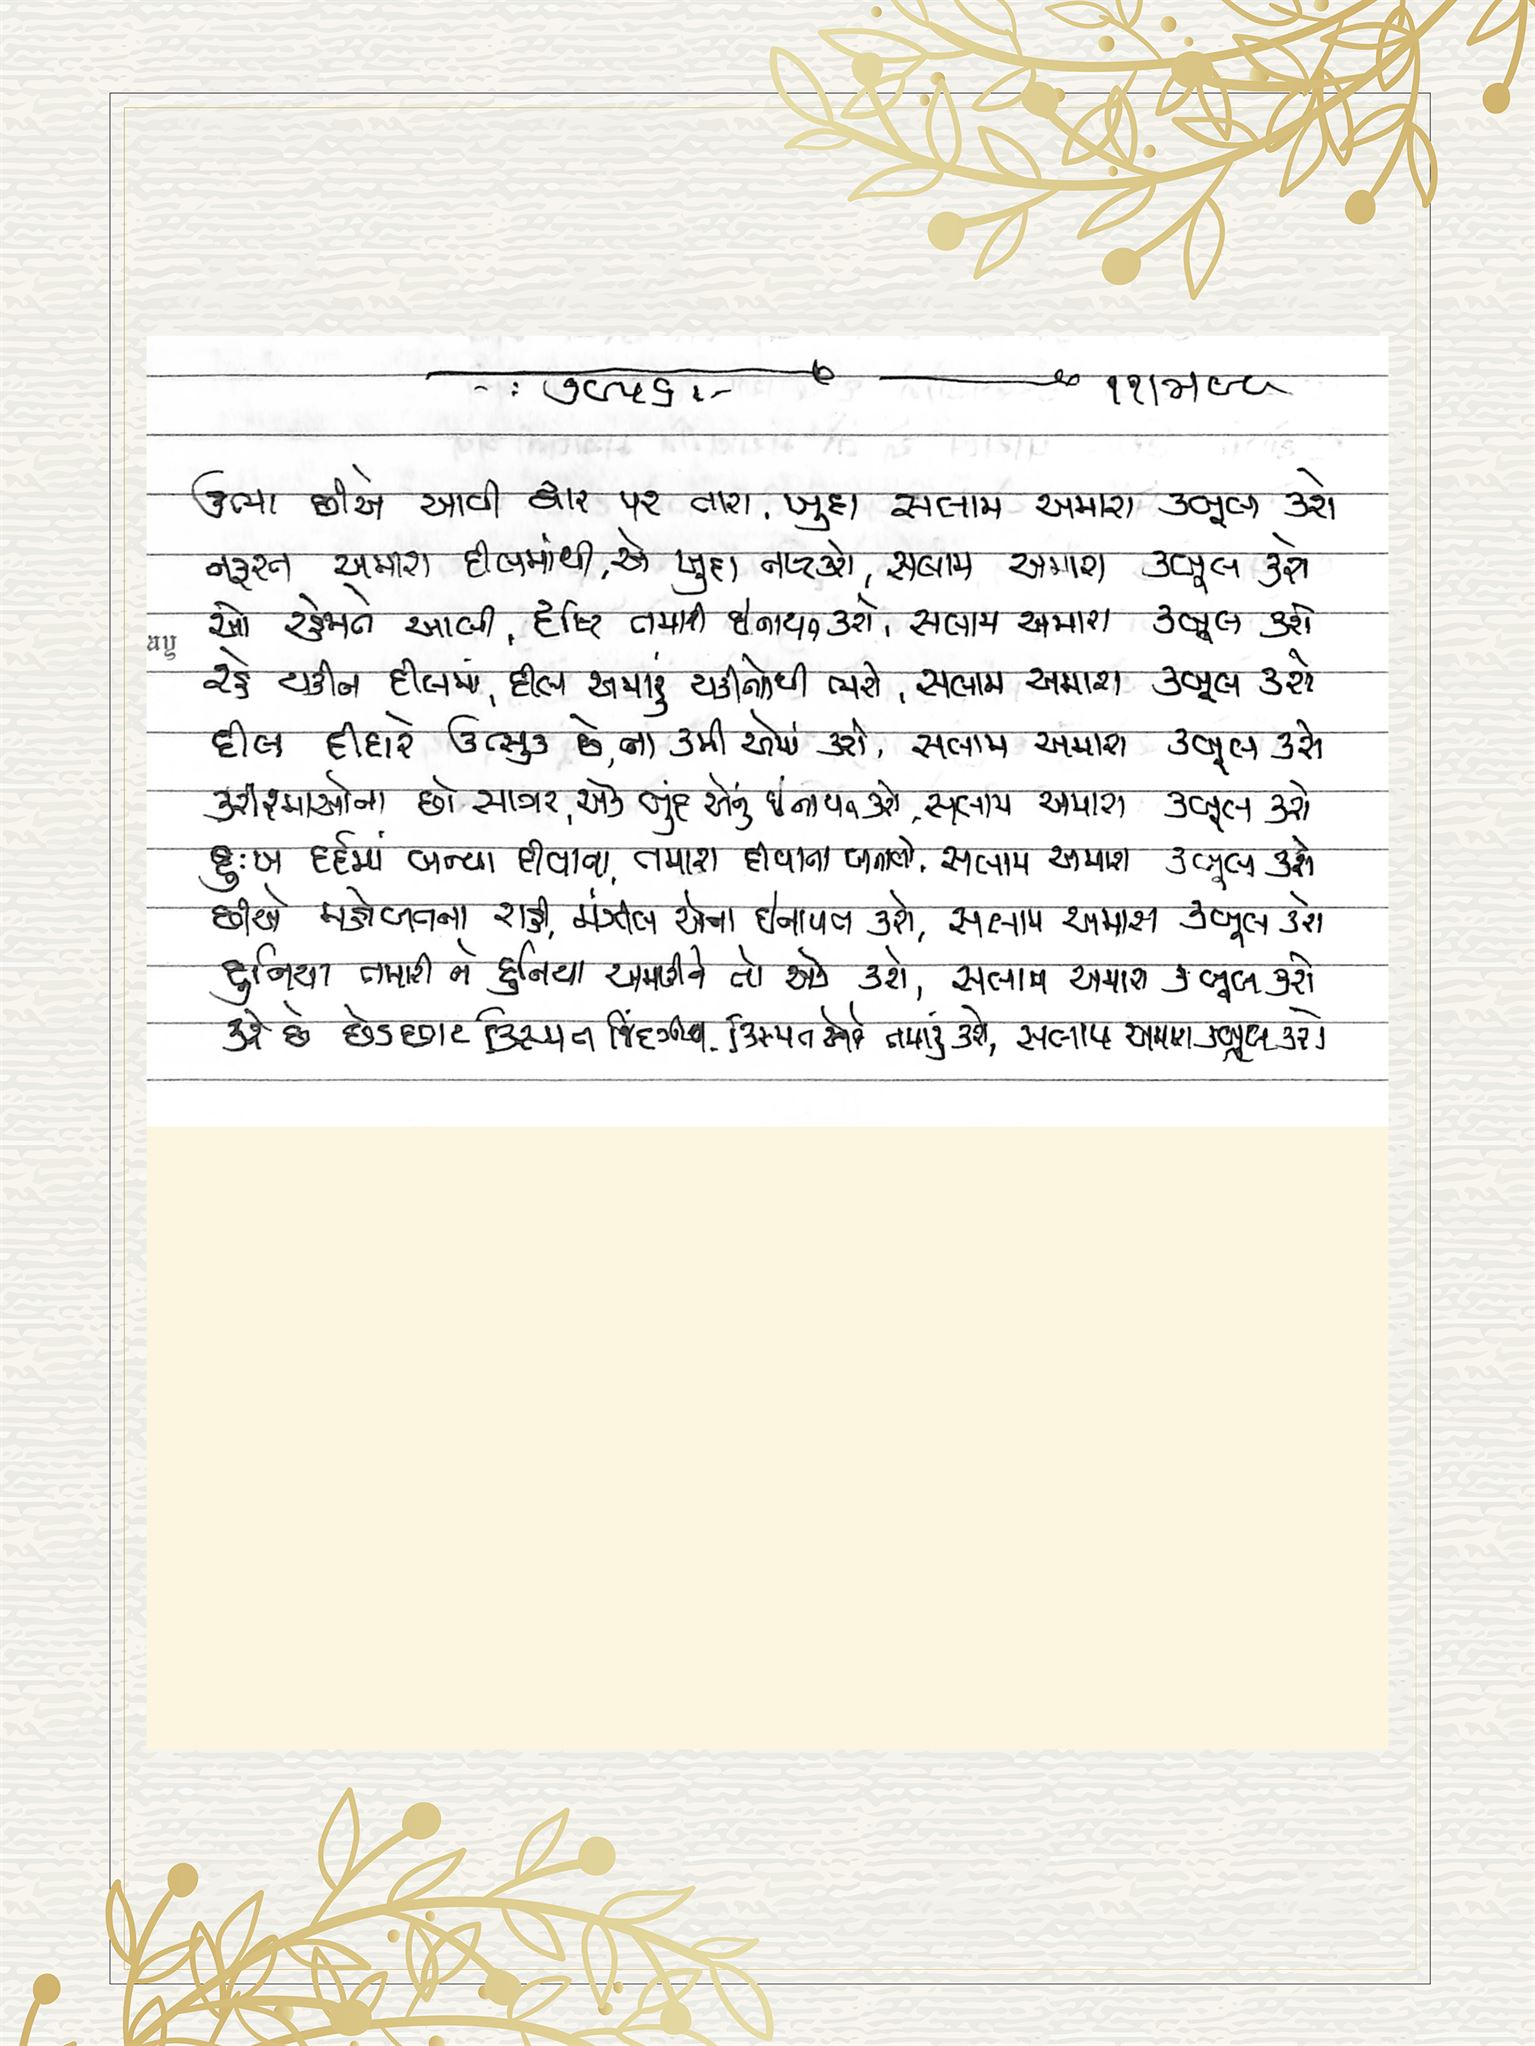 -: ૭૯૫૬ :- ૧૧/મ ૯૮
ઉભા છીએ આવી દ્વાર પર તારા, ખુદા સલામ અમારા કબૂલ કરો
નફરત અમારા દીલમાંથી, એ ખુદા નષ્ટ કરો, સલામ અમારા કબૂલ કરો
ઓ રહેમતે આલી, દૃષ્ટિ તમારી ઇનાયત કરો, સલામ અમારા કબૂલ કરો
રહે યકીન દીલમાં, દીલ અમારું યકીનોથી ભરો, સલામ અમારા કબૂલ કરો
દીલ દીદારે ઉત્સુક છે, ના કમી એમાં કરો, સલામ અમારા કબૂલ કરો
કરીશ્માઓના છો સાગર, એક બુંદ એનું ઇનાયત કરો, સલામ અમારા કબૂલ કરો
દુઃખ દર્દમાં બન્યા દીવાના, તમારા દીવાના બનાવો, સલામ અમારા કબૂલ કરો
છીએ મહોબતના રાહી, મંઝીલ એના ઇનાયત કરો, સલામ અમારા કબૂલ કરો
દુનિયા તમારી ને દુનિયા અમારીને તો એક કરો, સલામ અમારા કબૂલ કરો
કરે છે છેડછાડ કિસ્મત જિંદગીમાં, કિસ્મત તમારું કરો, સલામ અમારા કબૂલ કરો